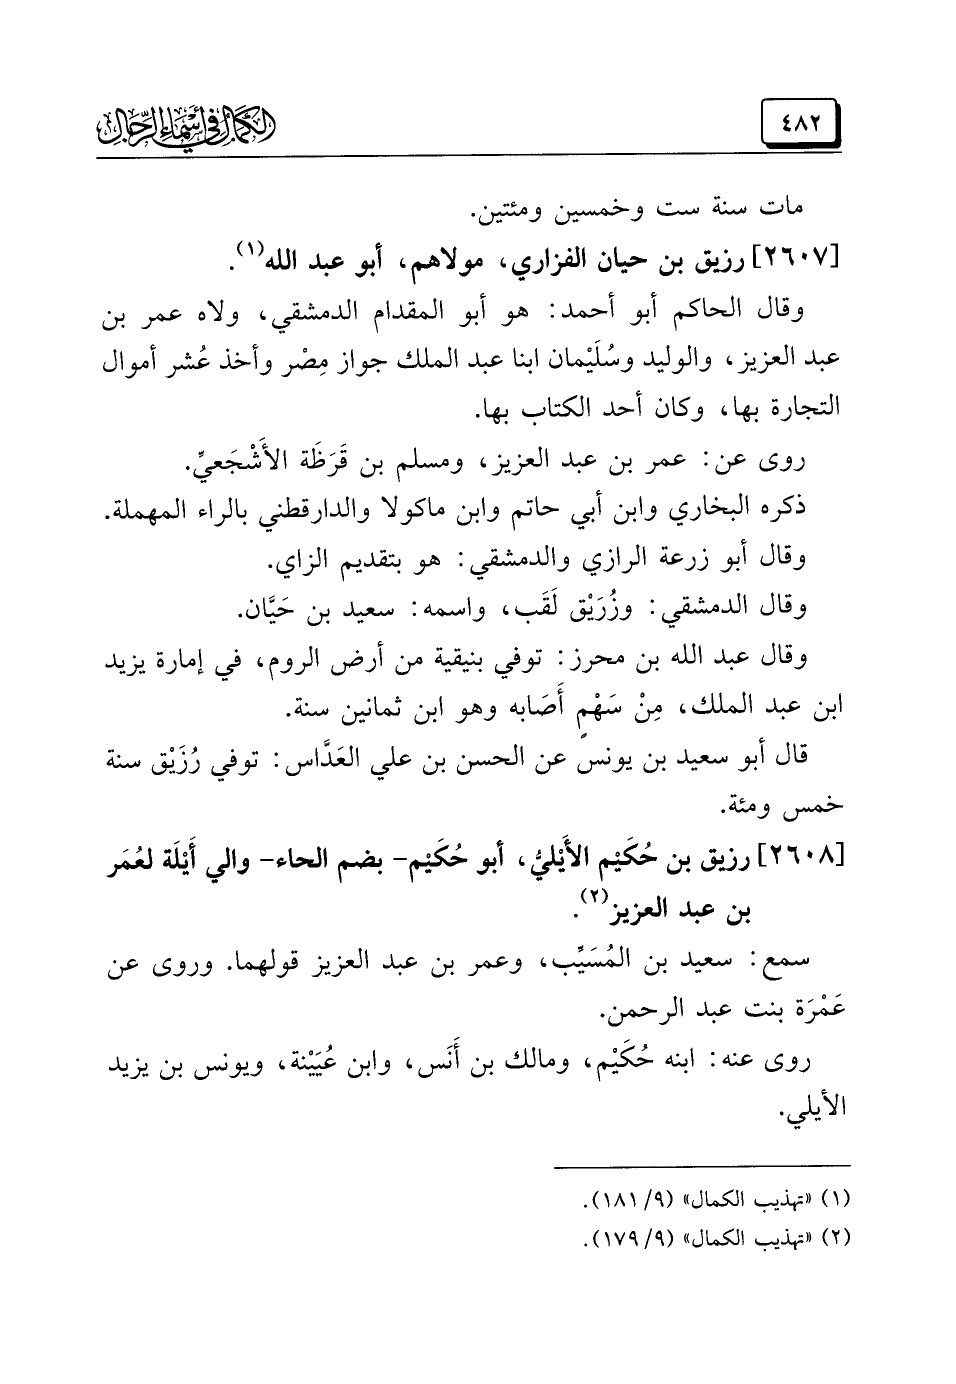 ٤٨٢
الكمال في أسماء الرجال
مات سنة ست وخمسين ومئتين.
[٢٦٠٧] رزيق بن حيان الفزاري، مولاهم، أبو عبد الله(١).
وقال الحاكم أبو أحمد: هو أبو المقدام الدمشقي، ولاه عمر بن
عبد العزيز، والوليد وسُلَيْمان ابنا عبد الملك جواز مِصْر وأخذ عُشر أموال
التجارة بها، وكان أحد الكتاب بها.
روى عن: عمر بن عبد العزيز، ومسلم بن قَرَظَة الأَشْجَعيِّ.
ذكره البخاري وابن أبي حاتم وابن ماكولا والدارقطني بالراء المهملة.
وقال أبو زرعة الرازي والدمشقي: هو بتقديم الزاي.
وقال الدمشقي: وزُرَيْق لَقَب، واسمه: سعيد بن حَيَّان.
وقال عبد الله بن محرز: توفي بنيقية من أرض الروم، في إمارة يزيد
ابن عبد الملك، مِنْ سَهْمٍ أَصَابه وهو ابن ثمانين سنة.
قال أبو سعيد بن يونس عن الحسن بن علي العَدَّاس: توفي رُزَيْق سنة
خمس ومئة.
[٢٦٠٨] رزيق بن حُكَيْم الأَيْليُّ، أبو حُكَيْم- بضم الحاء- والي أَيْلَة لعُمَر
بن عبد العزيز(٢).
سمع: سعيد بن المُسَيِّب، وعمر بن عبد العزيز قولهما. وروى عن
عَمْرَة بنت عبد الرحمن.
روى عنه: ابنه حُكَيْم، ومالك بن أَنَس، وابن عُيَيْنة، ويونس بن يزيد
الأيلي.
(١) «تهذيب الكمال» (٩/ ١٨١).
(٢) «تهذيب الكمال» (٩/ ١٧٩).